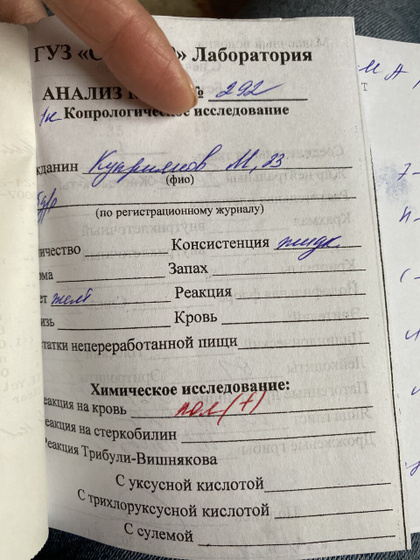 ГУЗ «С » Лаборатория
АНАЛИЗ № 292
Копрологическое исследование
жданин Куприянов М, 23
(фио)
(по регистрационному журналу)
ичество Консистенция жидк
рма Запах
ет желт Реакция
изь Кровь
татки непереработанной пищи
Химическое исследование:
еакция на кровь пол(+)
еакция на стеркобилин
Реакция Трибули-Вишнякова
С уксусной кислотой
С трихлоруксусной кислотой
С сулемой